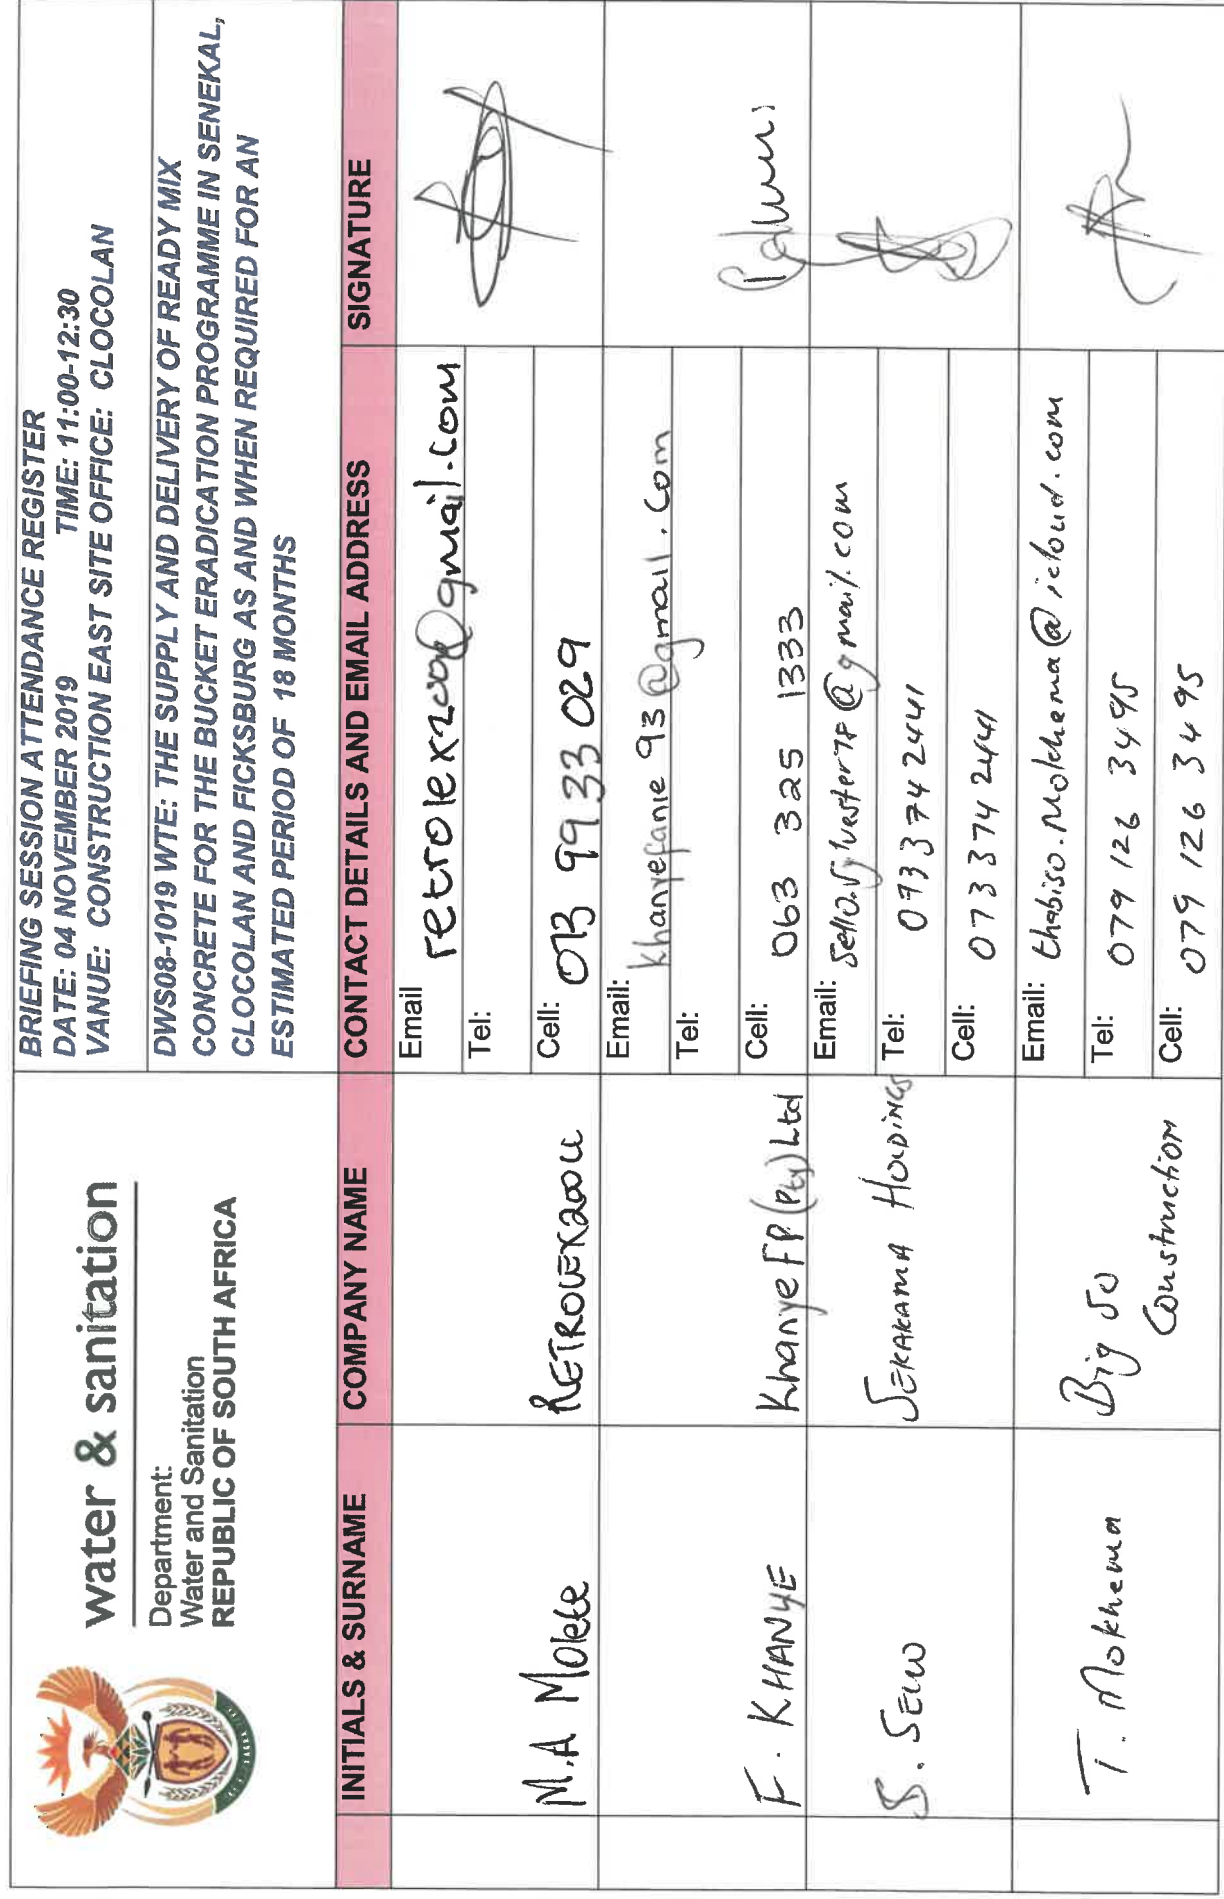 water & sanitation
Department:
Water and Sanitation
REPUBLIC OF SOUTH AFRICA
BRIEFING SESSION ATTENDANCE REGISTER
DATE: 04 NOVEMBER 2019 TIME: 11:00-12:30
VANUE: CONSTRUCTION EAST SITE OFFICE: CLOCOLAN
DWS08-1019 WTE: THE SUPPLY AND DELIVERY OF READY MIX
CONCRETE FOR THE BUCKET ERADICATION PROGRAMME IN SENEKAL,
CLOCOLAN AND FICKSBURG AS AND WHEN REQUIRED FOR AN
ESTIMATED PERIOD OF 18 MONTHS
INITIALS & SURNAME COMPANY NAME CONTACT DETAILS AND EMAIL ADDRESS SIGNATURE
M.A Molete
Email
Tel:
Cell: 073 99 33 029
F. KHANYE
Khanye FP (Pty) Ltd
Email: Khanyefanie 93 @gmail.com
Tel:
Cell: 063 325 1333
S. SELLO
SEKARAMA HOLDINGS
Email:
Tel: 073 374 2441
Cell: 073 374 2441
T. Mokhema
Big 50
Construction
Email: thabiso.mokhema@icloud.com
Tel: 079 126 3495
Cell: 079 126 3495